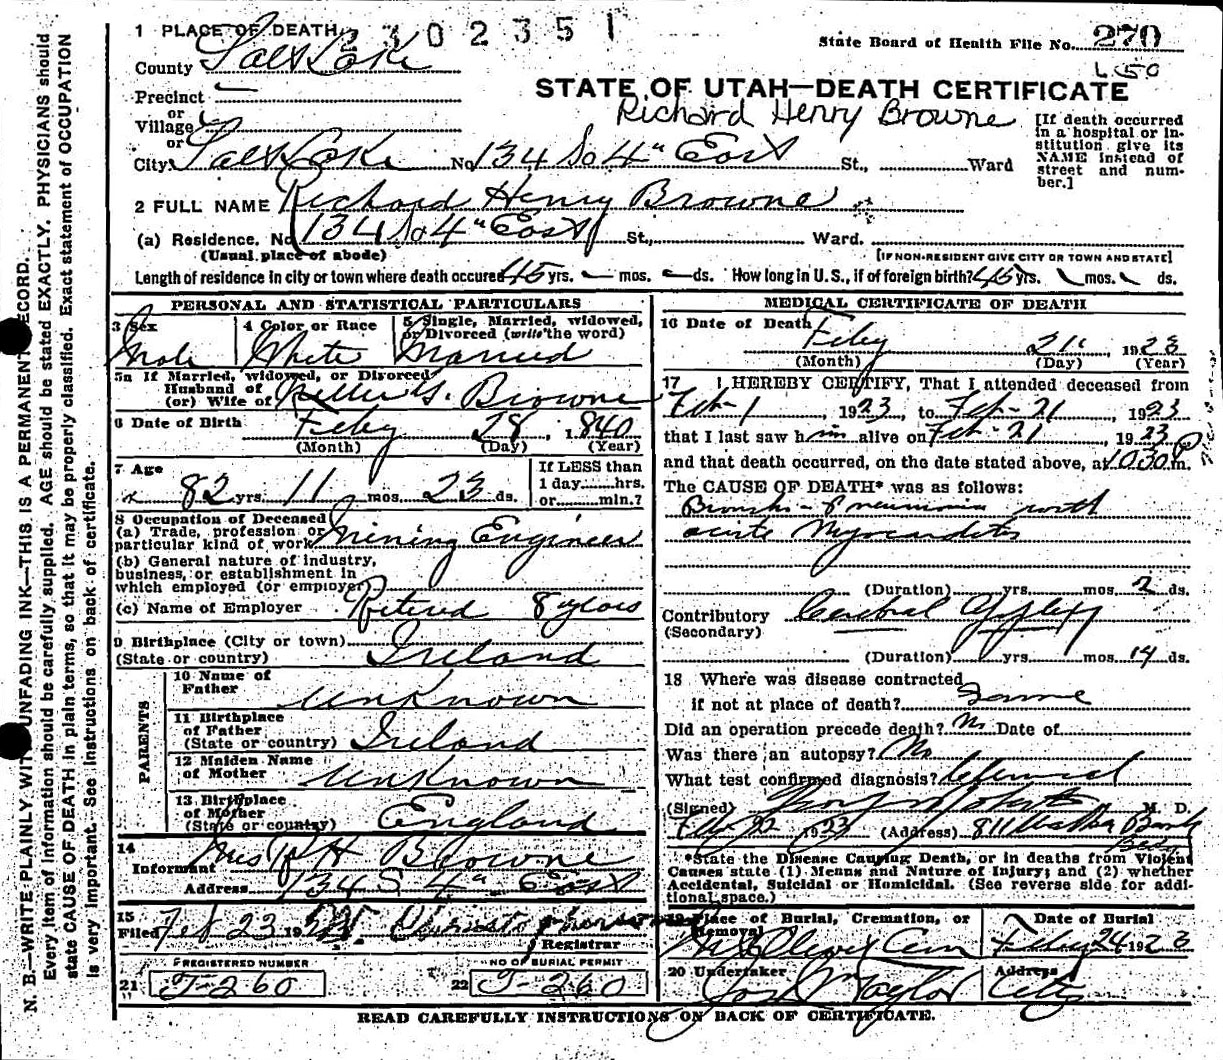 1 PLACE OF DEARTH 2302351
State Board of Health File No. 270
County Salt Lake
1650
STATE OF UTAH—DEATH CERTIFICATE
Precinct
or
Village
or
Richard Henry Browne
[If death occurred in a hospital or institution give its NAME instead of street and number.]
City Salt Lake No. 134 So 4" East St., Ward
2 FULL NAME Richard Henry Browne
(a) Residence. No. 134 So 4" East St., Ward.
(Usual place of abode) [IF NON-RESIDENT GIVE CITY OR TOWN AND STATE]
Length of residence in city or town where death occured 45 yrs. — mos. — ds. How long in U. S., if of foreign birth? 45 yrs. mos. ds.
PERSONAL AND STATISTICAL PARTICULARS
3 Sex
Male
4 Color or Race
White
5 Single, Married, widowed, or Divorced (write the word)
Married
5a If Married, widowed, or Divorced
Husband of
(or) Wife of G. Browne
6 Date of Birth Feby 28, 1840
(Month) (Day) (Year)
7 Age
82 yrs. 11 mos. 23 ds.
If LESS than
1 day hrs.
or min.?
8 Occupation of Deceased
(a) Trade, profession or
particular kind of work Mining Engineer
(b) General nature of industry,
business, or establishment in
which employed (or employer)
(c) Name of Employer Retired 8 years
9 Birthplace (City or town)
(State or country) Ireland
PARENTS
10 Name of
Father Unknown
11 Birthplace
of Father
(State or country) Ireland
12 Maiden Name
of Mother Unknown
13 Birthplace
of Mother
(State or country) England
14
Informant Mrs R H Browne
Address 134 S 4" East
15
Filed Feb 23 192
Registrar
REGISTERED NUMBER
21 J-260
NO OF BURIAL PERMIT
22 J-260
MEDICAL CERTIFICATE OF DEATH
16 Date of Death Feby 21", 1923
(Month) (Day) (Year)
17 I HEREBY CERTIFY, That I attended deceased from
Feb-1, 1923, to Feb-21, 1923
that I last saw him alive on Feb-21, 1923
and that death occurred, on the date stated above, at 1030 P m.
The CAUSE OF DEATH* was as follows:
Broncho-Pneumonia with
acute Myocarditis
(Duration) yrs. mos. 2 ds.
Contributory Cerebral Apoplexy
(Secondary)
(Duration) yrs. mos. 14 ds.
18 Where was disease contracted
if not at place of death? Same
Did an operation precede death? No Date of
Was there an autopsy? No
What test confirmed diagnosis?
(Signed) M. D.
Feb 22, 1923 (Address) 811 Walker Bank
Bldg
*State the Disease Causing Death, or in deaths from Violent
Causes state (1) Means and Nature of Injury; and (2) whether
Accidental, Suicidal or Homicidal. (See reverse side for addi-
tional space.)
19 Place of Burial, Cremation, or
Removal
Mt Olivet Cem
Date of Burial
Feby 24 1923
20 Undertaker
Jos Taylor
Address
City
READ CAREFULLY INSTRUCTIONS ON BACK OF CERTIFICATE.
N. B.—WRITE PLAINLY WITH UNFADING INK—THIS IS A PERMANENT RECORD.
Every item of information should be carefully supplied. AGE should be stated EXACTLY. PHYSICIANS should
state CAUSE OF DEATH in plain terms, so that it may be properly classified. Exact statement of OCCUPATION
is very important. See instructions on back of certificate.